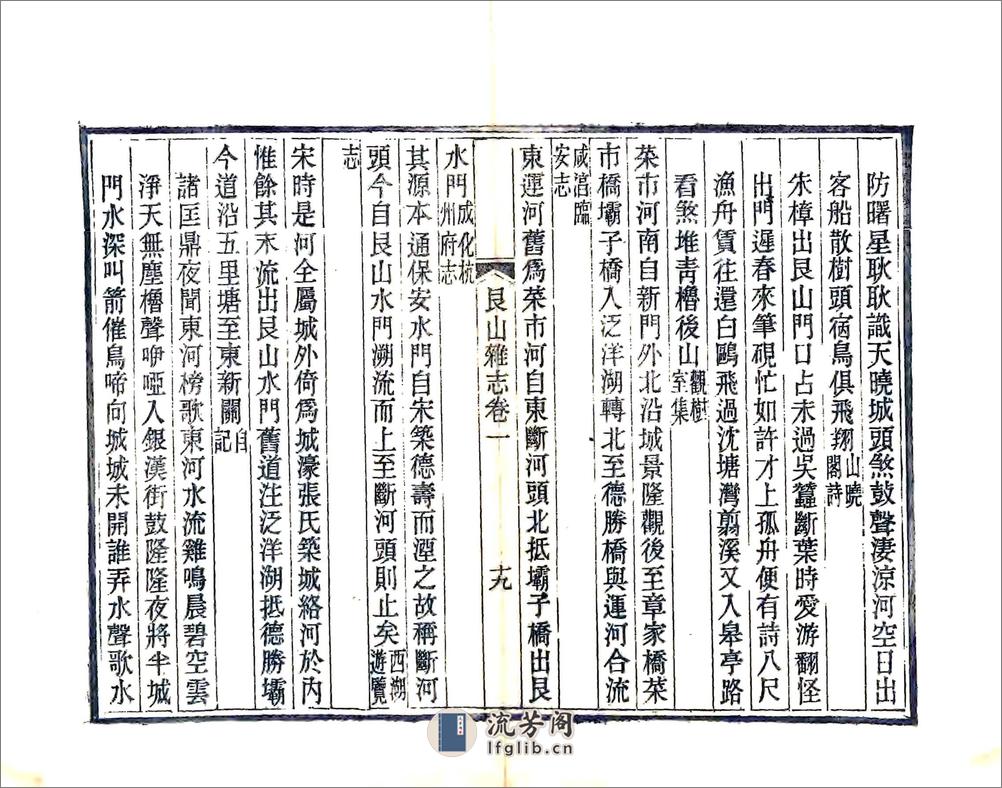 防曙星耿耿識天曉城頭煞鼓聲淒涼河空日出
客船散樹頭宿鳥俱飛翔山曉閣詩
朱樟出艮山門口占未過吳蠶斷葉時愛游翻怪
出門遲春來筆硯忙如許才上孤舟便有詩八尺
漁舟賃往還白鷗飛過沈塘灣翦溪又入皋亭路
看煞堆青櫓後山觀樹室集
菜市河南自新門外北沿城景隆觀後至章家橋菜
市橋壩子橋入泛洋湖轉北至德勝橋與運河合流
咸淳臨安志
東運河舊爲菜市河自東斷河頭北抵壩子橋出艮
艮山雜志卷一
十九
水門成化杭州府志
其源本通保安水門自宋築德壽而湮之故稱斷河
頭今自艮山水門溯流而上至斷河頭則止矣西湖遊覽
志
宋時是河全屬城外倚爲城濠張氏築城絡河於內
惟餘其末流出艮山水門舊道注泛洋湖抵德勝壩
今道沿五里塘至東新關自記
諸匡鼎夜聞東河榜歌東河水流雞鳴晨碧空雲
淨天無塵櫓聲咿啞人銀漢街鼓隆隆夜將半城
門水深叫箭催鳥啼向城城未開誰弄水聲歌水
流芳阁
lfglib.cn